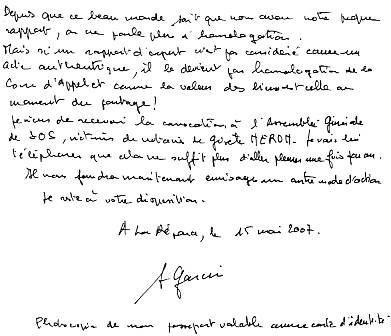 Depuis que ce beau monde sait que nous avons notre propre
rapport, on ne parle plus d'homologation.
Mais si un rapport d'expert n'est pas considéré comme un
acte authentique, il le devient par homologation de la
Cour d'Appel et comme la valeur des biens est celle au
moment du partage!
Je viens de recevoir la convocation à l'Assemblée Générale
de SOS, victimes de notaires de Gisèle MEROM. Je vais lui
téléphoner que cela ne suffit plus d'aller pleurer une fois par an.
Il nous faudra maintenant envisager un autre mode d'action
Je reste à votre disposition.
A La, le 15 mai 2007.
A Garcin
Photocopie de mon passeport valable comme carte d'identité